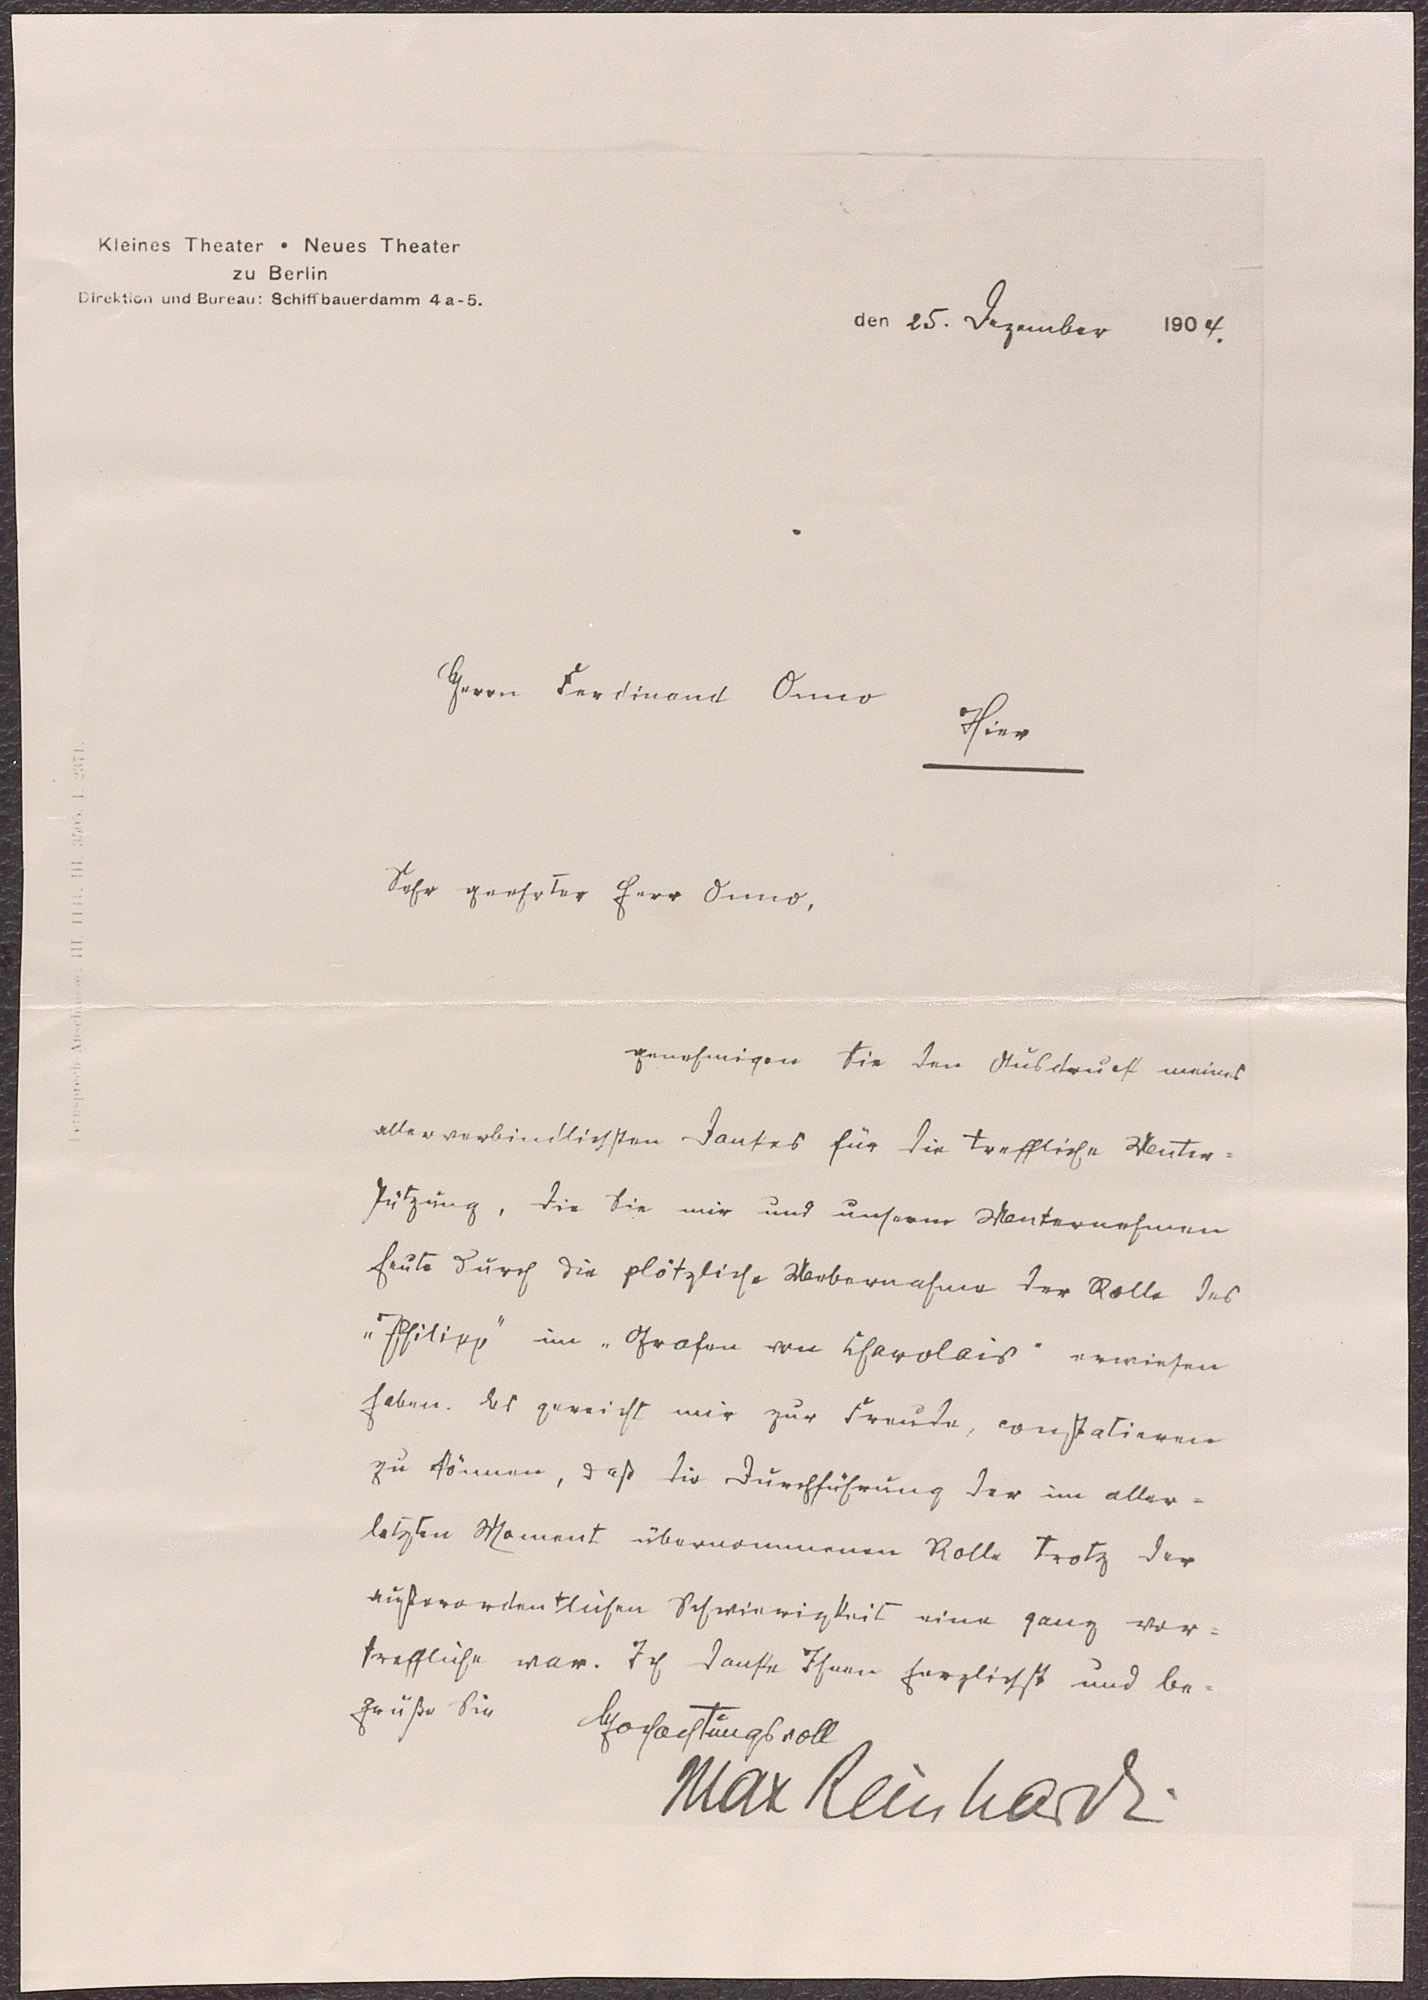 Kleines Theater • Neues Theater
zu Berlin
Direktion und Bureau: Schiffbauerdamm 4a-5.
den 25. Dezember 1904.
Herrn Ferdinand Onno
Hier
Sehr geehrter Herr Onno,
genehmigen Sie den Ausdruck meines
allerverbindlichsten Dankes für die treffliche Unter-
stützung, die Sie mir und unserm Unternehmen
heute durch die plötzliche Uebernahme der Rolle des
„Philipp" im „Grafen von Charolais" erwiesen
haben. Es gereicht mir zur Freude, constatieren
zu können, daß die Durchführung der im aller-
letzten Moment übernommenen Rolle trotz der
außerordentlichen Schwierigkeit eine ganz vor-
treffliche war. Ich danke Ihnen herzlichst und be-
grüße Sie
Hochachtungsvoll
Max Reinhardt.
Fernsprech-Anschlüsse: III.